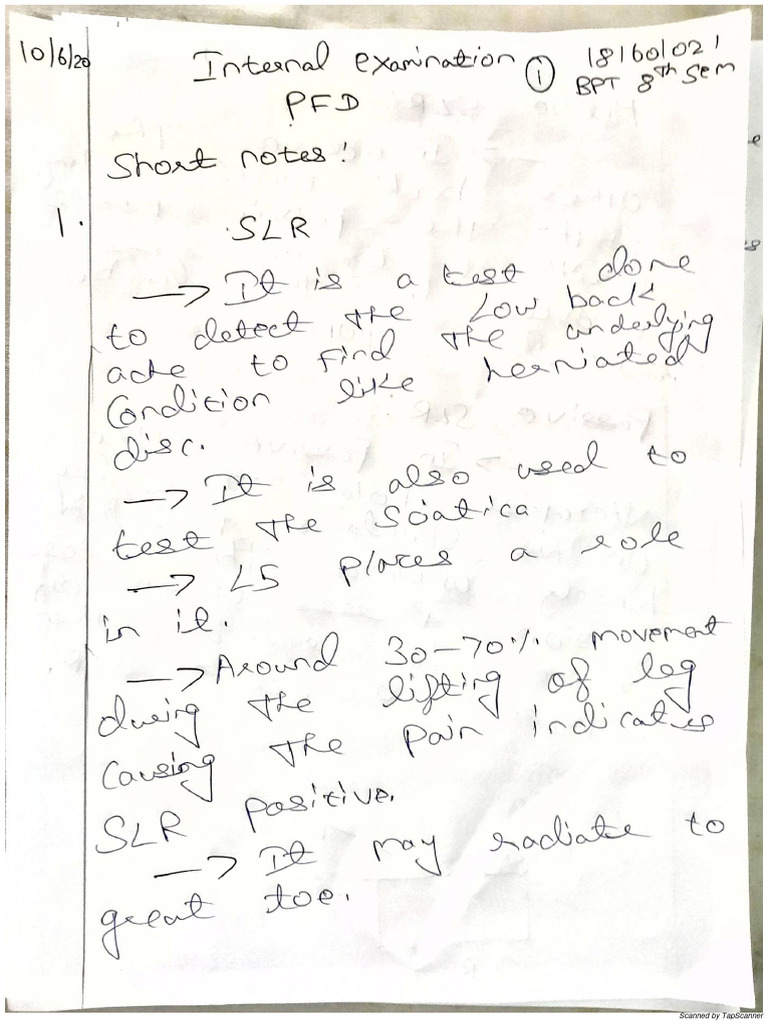 10/6/20
Internal examination
①
18/60/021
BPT 8th Sem
PFD
Short notes!
1.
SLR
→ It is a test done
to detect the Low back
ache to find the underlying
Condition like herniated
disc.
→ It is also used to
test the Sciatica
→ L5 places a role
in it.
→ Around 30-70% movement
during the lifting of leg
Causing the pain indicates
SLR positive.
→ It may radiate to
great toe.
Scanned by TapScanner